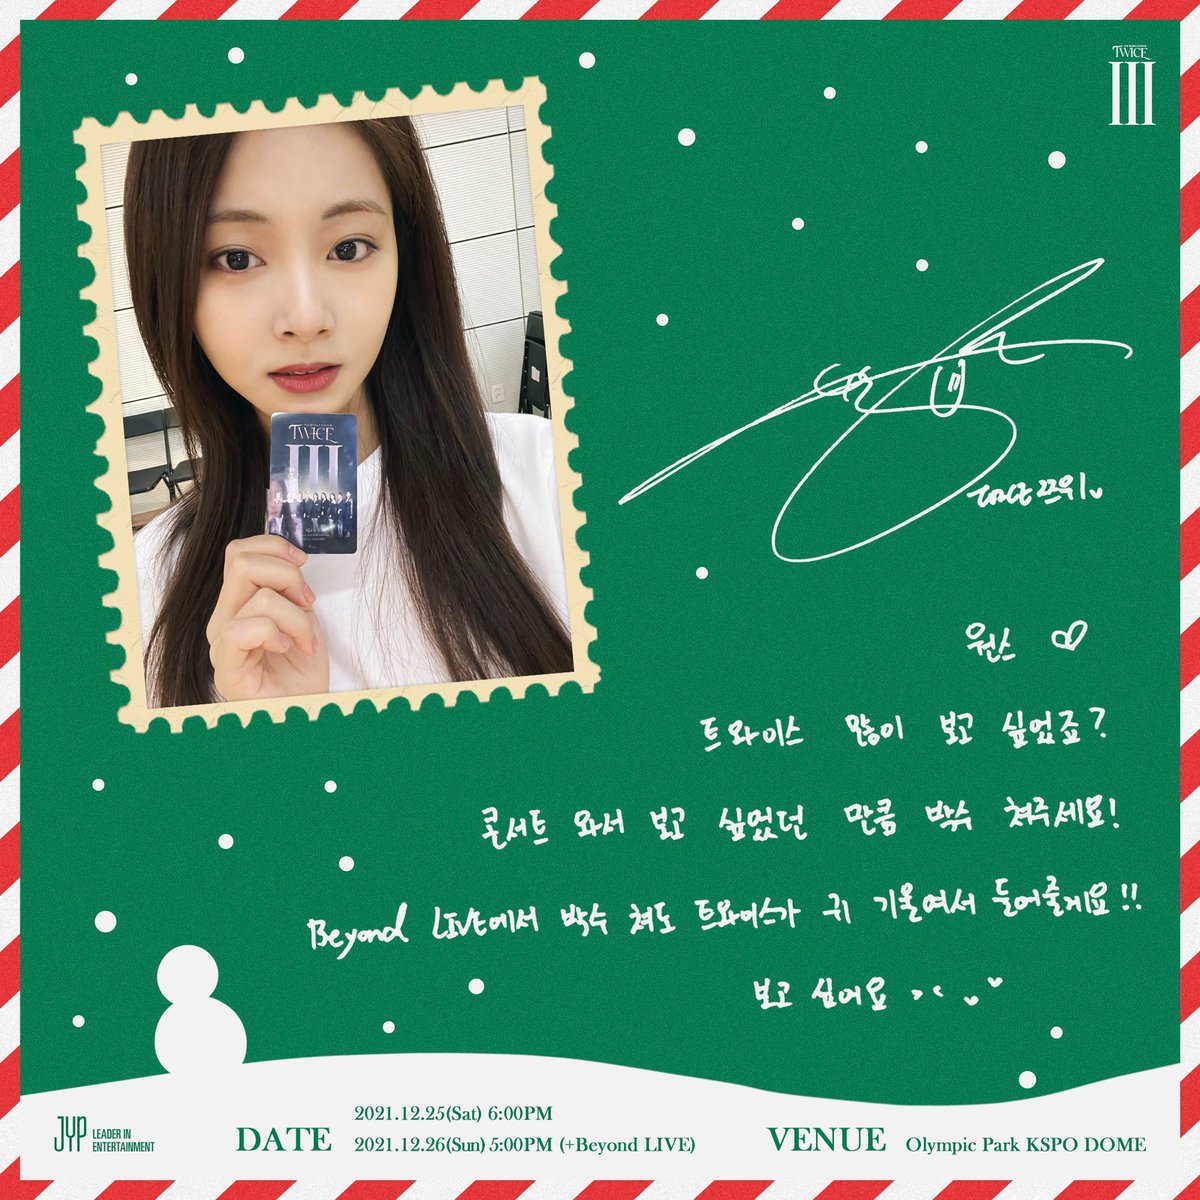 TWICE
III
TWICE
III
TWICE 쯔위
원스
트와이스 많이 보고 싶었죠?
콘서트 와서 보고 싶었던 만큼 박수 쳐주세요!
Beyond LIVE에서 박수 쳐도 트와이스가 귀 기울여서 들어줄게요!!
보고 싶어요 > <
JYP LEADER IN
ENTERTAINMENT
DATE
2021.12.25(Sat) 6:00PM
2021.12.26(Sun) 5:00PM (+Beyond LIVE)
VENUE Olympic Park KSPO DOME